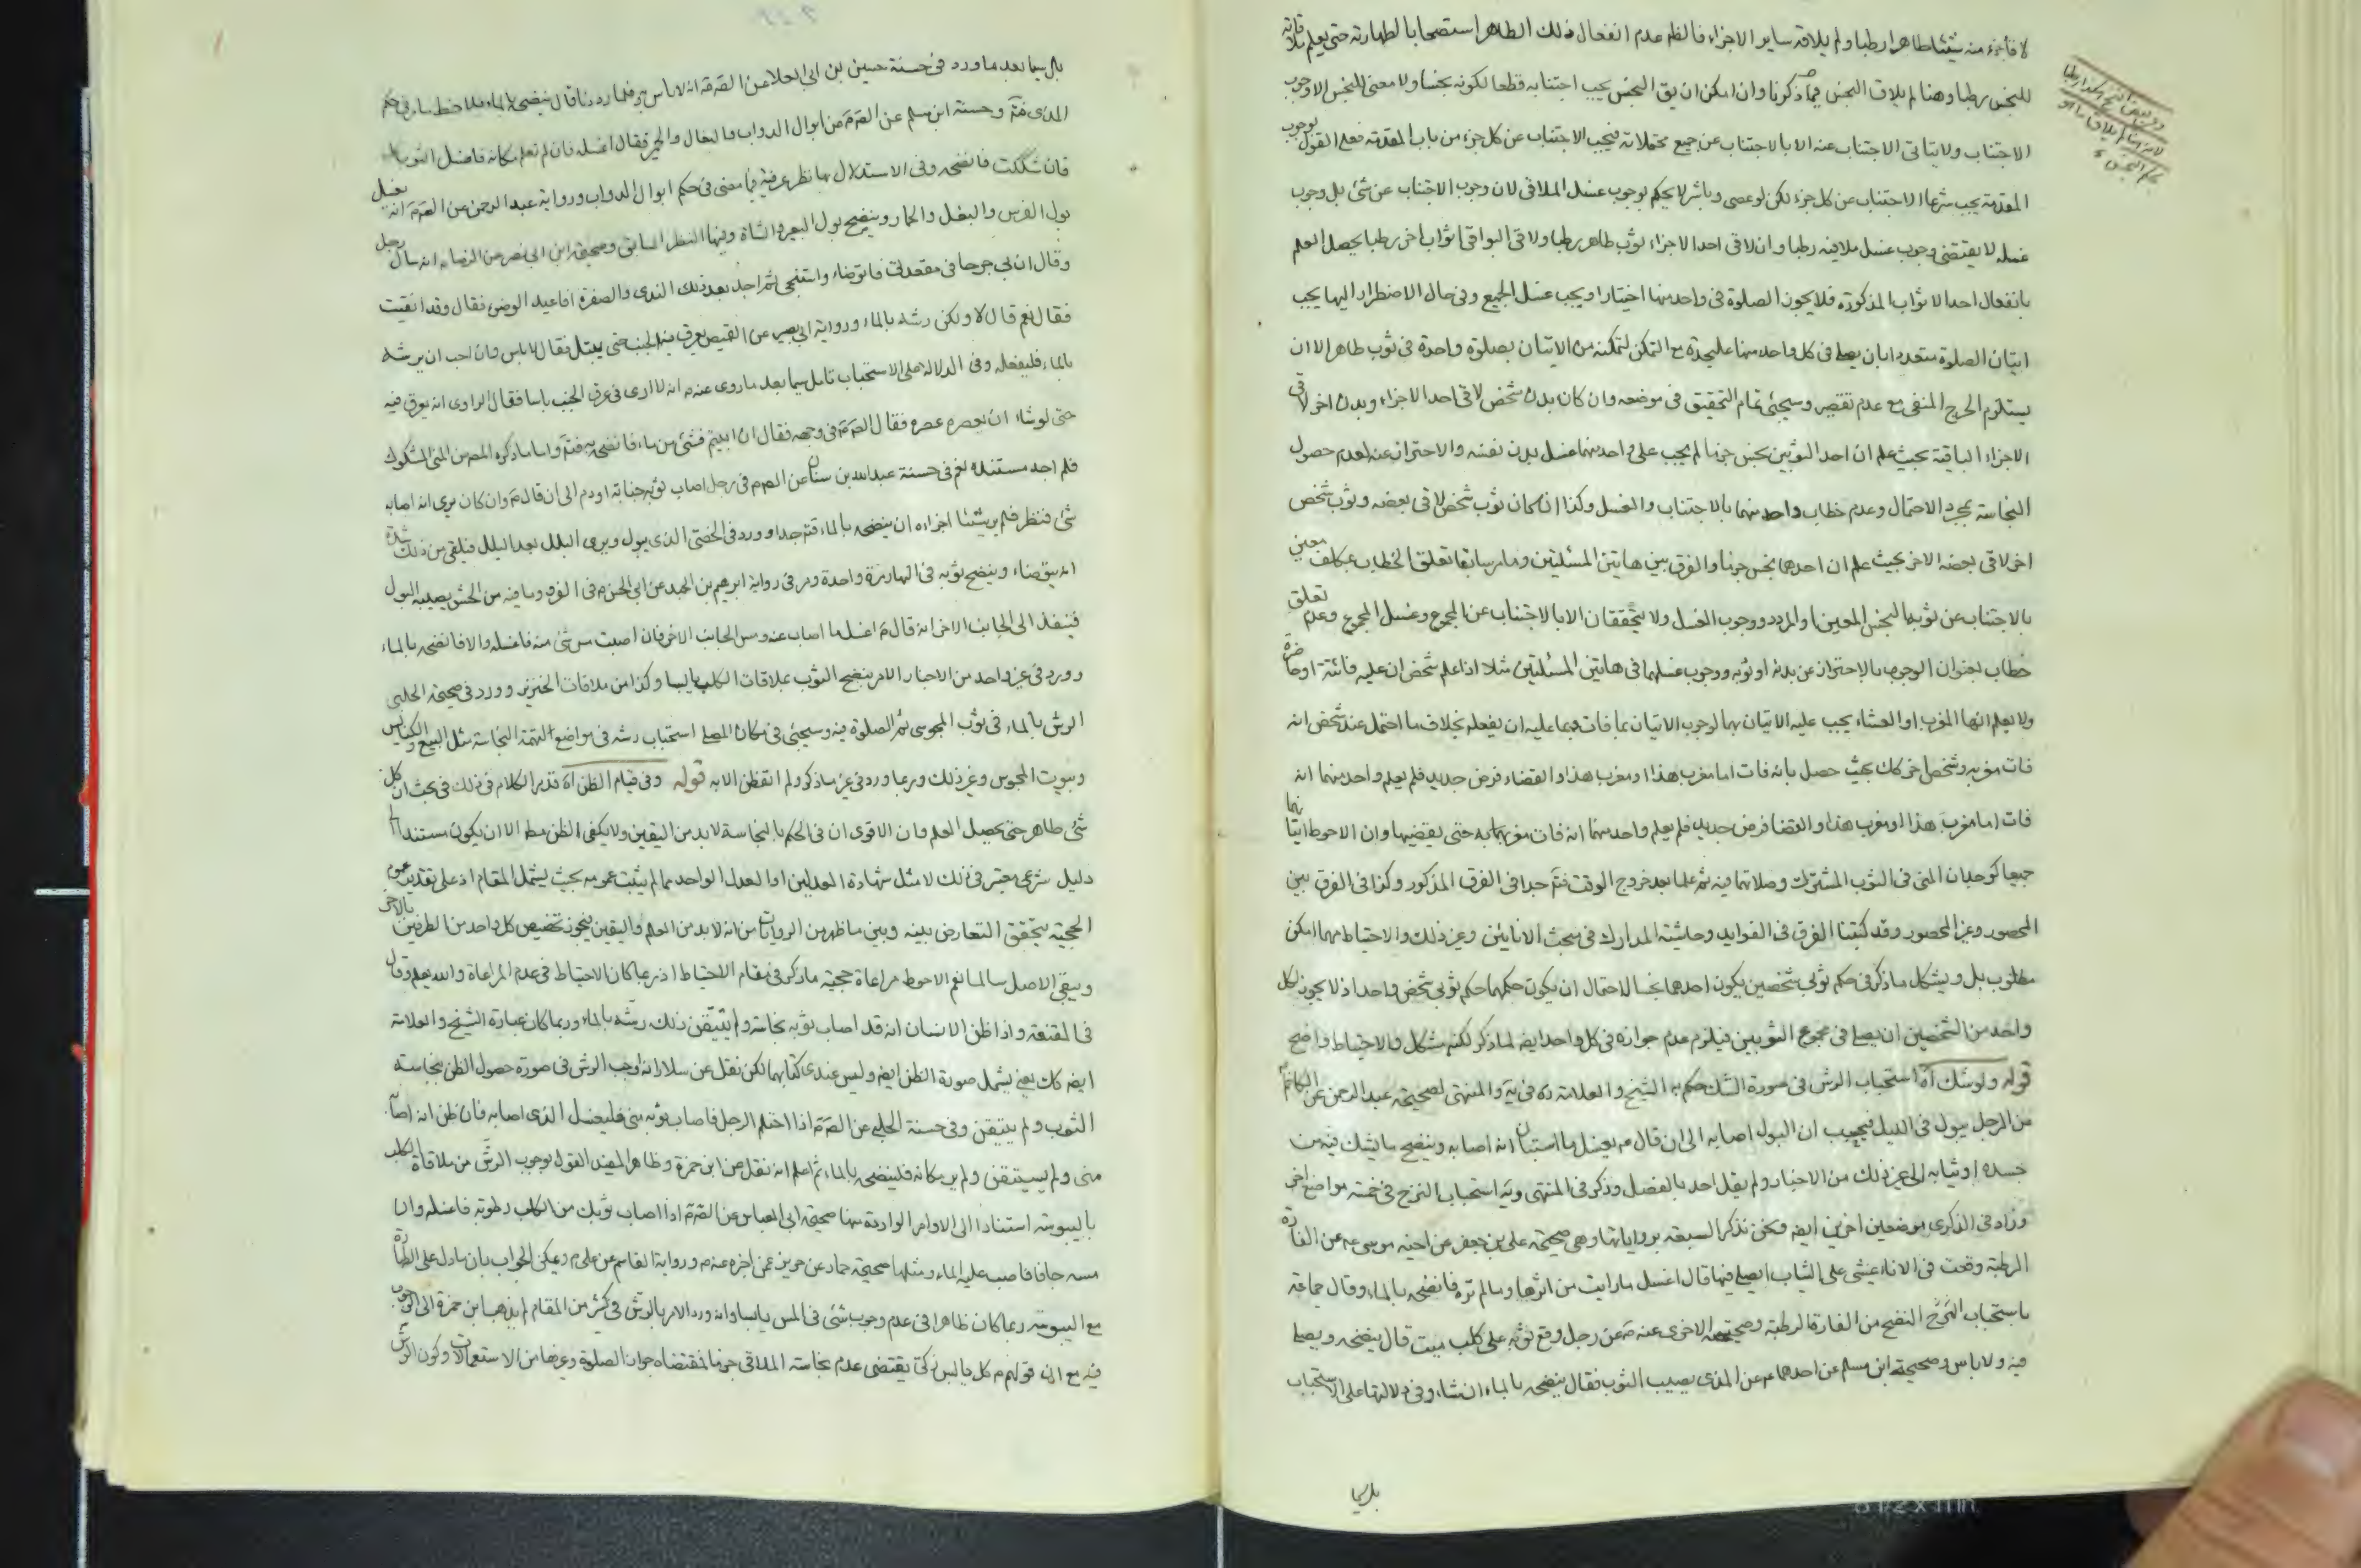 لا فأجزاء منه شيئا طاهرا رطبا ولم يلاقه ساير الاجزاء فالظاهر عدم انفعال ذلك الطاهر استصحابا لطهارته حتى يعلم ملاقاته
للنجس رطبا وهنا لم يلاق النجس فيما ذكرنا وان امكن ان يق النجس يجب اجتنابه قطعا لكونه نجسا ولا معنى للنجس الا وجوب
الاجتناب ولا يتاتى الاجتناب عنه الا بالاجتناب عن جميع محتملاته فيجب الاجتناب عن كل جزء من باب المقدمة فعلى القول بوجوب
المقدمة يجب شرعا الاجتناب عن كل جزء لكن لو عصى وباشر لا يحكم بوجوب غسل الملاقى لان وجوب الاجتناب عن شئ بل وجوب
غسله لا يقتضى وجوب غسل ملاقيه رطبا وان لاقى احد الاجزاء ثوب طاهر رطبا ولاقى البواقى اثواب اخر رطبا يحصل العلم
بانفعال احد الاثواب المذكورة فلا يجوز الصلوة فى واحد منها اختيارا ويجب غسل الجميع وفى حال الاضطرار اليها يجب
اتيان الصلوة متعددا بان يصلى فى كل واحد منها عليحدة مع التمكن لتمكنه من الاتيان بصلوة واحدة فى ثوب طاهر الا ان
يستلزم الحرج المنفى مع عدم تقصير وسيجئ تمام التحقيق فى موضعه وان كان بدن شخص لاقى احد الاجزاء وبدن اخر لاقى
الاجزاء الباقية بحيث علم ان احد الثوبين نجس جزما لم يجب على واحد منهما غسل بدن نفسه والاحتراز عنه لعدم حصول
النجاسة بمجرد الاحتمال وعدم خطاب واحد منهما بالاجتناب والغسل وكذا ان كان ثوب شخص لاقى بعضه وثوب شخص
اخر لاقى بعضه الاخر بحيث علم ان احدهما نجس جزما والفرق بين هاتين المسئلتين وما مر سابقا تعلق الخطاب بمكلف معين
بالاجتناب عن ثوبه النجس المعين او المردد ووجوب الغسل ولا يتحققان الا بالاجتناب عن المجموع وغسل المجموع وعدم تعلق
خطاب بعنوان الوجوب بالاحتراز عن بدنه او ثوبه ووجوب غسلهما فى هاتين المسئلتين مثلا اذا علم شخص ان عليه فائتة او حاضرة
ولا يعلم انها المغرب او العشاء يجب عليه الاتيان بهما لوجوب الاتيان بما فات مما عليه ان يفعله بخلاف ما احتمل عند شخص انه
فات مغربه وشخص اخر كك بحيث حصل بانه فات اما مغرب هذا او مغرب هذا والقضاء فرض جديد فلم يعلم واحد منهما انه
فات اما مغرب هذا او مغرب هذا والقضا فرض جديد فلم يعلم واحد منهما انه فات مغربه حتى يقضيها وان الاحوط اتيانهما
جميعا كوجدان المنى فى الثوب المشترك وصلاتهما فيه ثم علما بعد خروج الوقت فتم جدا فى الفرق المذكور وكذا فى الفرق بين
المحصور وغير المحصور وقد كتبنا الفرق فى الفوايد وحاشية المدارك فى مبحث الانائين وغير ذلك والاحتياط مهما امكن
مطلوب بل ويشكل ما ذكر فى حكم ثوبى شخصين يكون احدهما نجسا لاحتمال ان يكون حكمهما حكم ثوبى شخص واحد اذ لا يجوز لكل
واحد من الشخصين ان يصلى فى مجموع الثوبين فيلزم عدم جوازه فى كل واحد ايضا لما ذكر لكنه مشكل والاحتياط واضح
قوله ولو شك آه استحباب الرش فى صورة الشك حكم به الشيخ والعلامة ره فى يه والمنتهى لصحيحة عبد الرحمن عن الكاظم
من الرجل يبول فى الليل فيحسب ان البول اصابه الى ان قال م يغسل ما استبان انه اصابه وينضح ما يشك فيه من
جسده او ثيابه الى غير ذلك من الاخبار ولم يقل احد بالفصل وذكر فى المنتهى ويه استحباب النزح فى خمسة مواضع اخر
وزاد فى الذكرى موضعين اخرين ايضا ونحن نذكر السبعة برواياتها وهى صحيحة على بن جعفر عن اخيه موسى عه عن الفارة
الرطبة وقعت فى الاناء تمشى على الثياب ايصلى فيها قال اغسل ما رايت من اثرها وما لم تره فانضحه بالماء وقال جماعة
باستحباب النضح من الفارة الرطبة وصحيحته الاخرى عنه م عن رجل وقع ثوبه على كلب ميت قال ينضحه ويصلى
فيه ولا باس وصحيحة ابن مسلم عن احدهما م عن المذى يصيب الثوب فقال ينضحه بالماء ان شاء وفى دلالتها على الاستحباب
بل سيما
بل سيما بعد ما ورد فى حسنة حسين بن ابى العلا عن الصم قه انه لا باس به فلما رددنا قال ينضحه بالماء فلاحظ ما مر فى حكم
المذى فتم وحسنة ابن مسلم عن الصم من ابوال الدواب والبغال والحمير فقال اغسله فان لم تعلم مكانه فاغسل الثوب كله
فان شككت فانضحه وفى الاستدلال بها نظر عرفته فيما مضى فى حكم ابوال الدواب ورواية عبد الرحمن عن الصم انه يغسل
بول الفرس والبغل والحمار وينضح بول البعير والشاة وفيها النظر السابق وصحيحة ابن ابى نصر عن الرضا م انه سال رجل
وقال ان بى جرحا فى مقعدتى فاتوضاء واستنجى ثم اجد بعد ذلك الندى والصفرة افاعيد الوضوء فقال وقد انقيت
فقال نعم قال لا ولكن رشه بالماء ورواية ابى بصير عن القميص يعرق فيه الجنب حتى يبتل فقال لا باس وان احب ان يرشه
بالماء فليفعله وفى الدلالة على الاستحباب تامل سيما بعد ما روى عنه م انه لا ارى فى عرق الجنب باسا فقال الراوى انه يعرق فيه
حتى لو شاء ان يعصره عصره فقال الصم فى وجهه فقال ان ابيتم فشئ من ماء فانضحه به فتم واما ما ذكره المص من المنى المشكوك
فلم اجد مستنده نعم فى حسنة عبد الله بن سنان عن الصم م فى رجل اصاب ثوبه جنابة او دم الى ان قال م وان كان يرى انه اصابه
شئ فنظر فلم ير شيئا اجزاه ان ينضحه بالماء فتم جدا وورد فى الخصى الذى يبول ويرى البلل بعد البلل فيلقى من ذلك شدة
انه يتوضاء وينضح ثوبه فى النهار مرة واحدة ومر فى رواية ابرهيم بن عبد الحميد عن ابى الحسن م فى الفرو وما فيه من الحشو يصيبه البول
فينفذ الى الجانب الاخر انه قال م اغسل ما اصاب عنه ومس الجانب الاخر فان اصبت مس شئ منه فاغسله والا فانضحه بالماء
وورد فى غير واحد من الاخبار الامر بنضح الثوب بملاقات الكلب يابسا وكذا من ملاقات الخنزير وورد فى صحيحة الحلبى
الرش بالماء فى ثوب المجوسى ثم الصلوة فيه وسيجئ فى مكان المصلى استحباب رشه فى مواضع التهمة النجاسة مثل البيع والكنايس
وبيوت المجوس وغير ذلك وربما ورد فى غير ما ذكر ولم اتفطن الا به قوله وفى قيام الظن آه قد مر الكلام فى ذلك فى بحث ان كل
شئ طاهر حتى يحصل العلم وان الاقوى ان فى الحكم بالنجاسة لا بد من اليقين ولا يكفى الظن مط الا ان يكون مستندا الى
دليل شرعى معتبر فى ذلك لا مثل شهادة العدلين او العدل الواحد مما لم يثبت عمومه بحيث يشمل المقام اذ على تقدير عموم
الحجية يتحقق التعارض بينه وبين ما ظهر من الروايات من انه لا بد من العلم واليقين فيجوز تخصيص كل واحد من الطرفين بالاخر
ويبقى الاصل سالما نعم الاحوط مراعاة حجية ما ذكر فى مقام الاحتياط اذ ربما كان الاحتياط فى عدم المراعاة والله يعلم وقال
فى المقنعة واذا ظن الانسان انه قد اصاب ثوبه نجاسة ولم يتيقن ذلك رشه بالماء وربما كان عبارة الشيخ والعلامة
ايضا كك يعنى يشمل صورة الظن ايضا وليس عندى كتابهما لكن نقل عن سلار انه اوجب الرش فى صورة حصول الظن بنجاسة
الثوب ولم يتيقن وفى حسنة الحلبى عن الصم اذا احتلم الرجل فاصاب ثوبه منى فليغسل الذى اصابه فان ظن انه اصابه
منى ولم يستيقن ولم ير مكانه فلينضحه بالماء ثم اعلم انه نقل عن ابن حمزة وظاهر المفيد القول بوجوب الرش من ملاقاة الكلب
باليبوسة استنادا الى الاوامر الواردة منها صحيحة ابى العباس عن الصم اذا اصاب ثوبك من الكلب رطوبة فاغسله وان
مسه جافا فاصبب عليه الماء ومثلها صحيحة حماد عن حريز عمن اخبره عنه م ورواية القاسم عن على م ويمكن الجواب بان ما دل على الطهارة
مع اليبوسة ربما كان ظاهرا فى عدم وجوب شئ فى المس يابسا وانه ورد الامر بالرش فى كثير من المقام لم يذهب ابن حمزة الى الوجوب
فيه مع ان قولهم م كل يابس زكى يقتضى عدم نجاسة الملاقى جزما لمقتضاه جواز الصلوة وغيرها من الاستعمالات وكون الرش